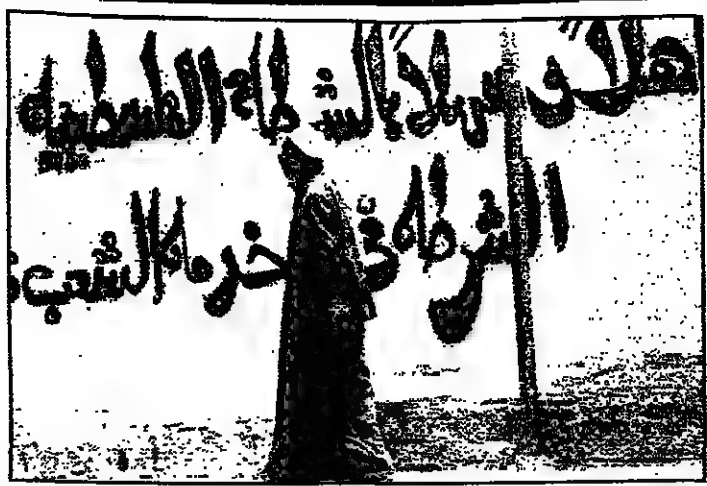 اهلاً و سهلاً بالشرطة الفلسطينيه
الشرطه في خدمه الشعب